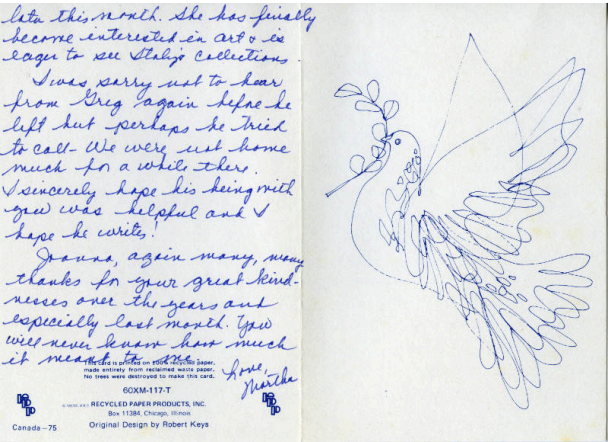 late this month. She has finally
become interested in art & is
eager to see Italy's collections.
I was sorry not to hear
from Greg again before he
left but perhaps he tried
to call - We were not home
much for a while there.
I sincerely hope his being with
you was helpful and I
hope he writes!
Joanna, again many, many
thanks for your great kind-
nesses over the years and
especially last month. You
will never know how much
it meant to me.
Love,
Martha
This card is printed on 100% recycled paper,
made entirely from reclaimed waste paper.
No trees were destroyed to make this card.
60XM-117-T
RECYCLED PAPER PRODUCTS, INC.
Box 11384, Chicago, Illinois
Canada-75
Original Design by Robert Keys